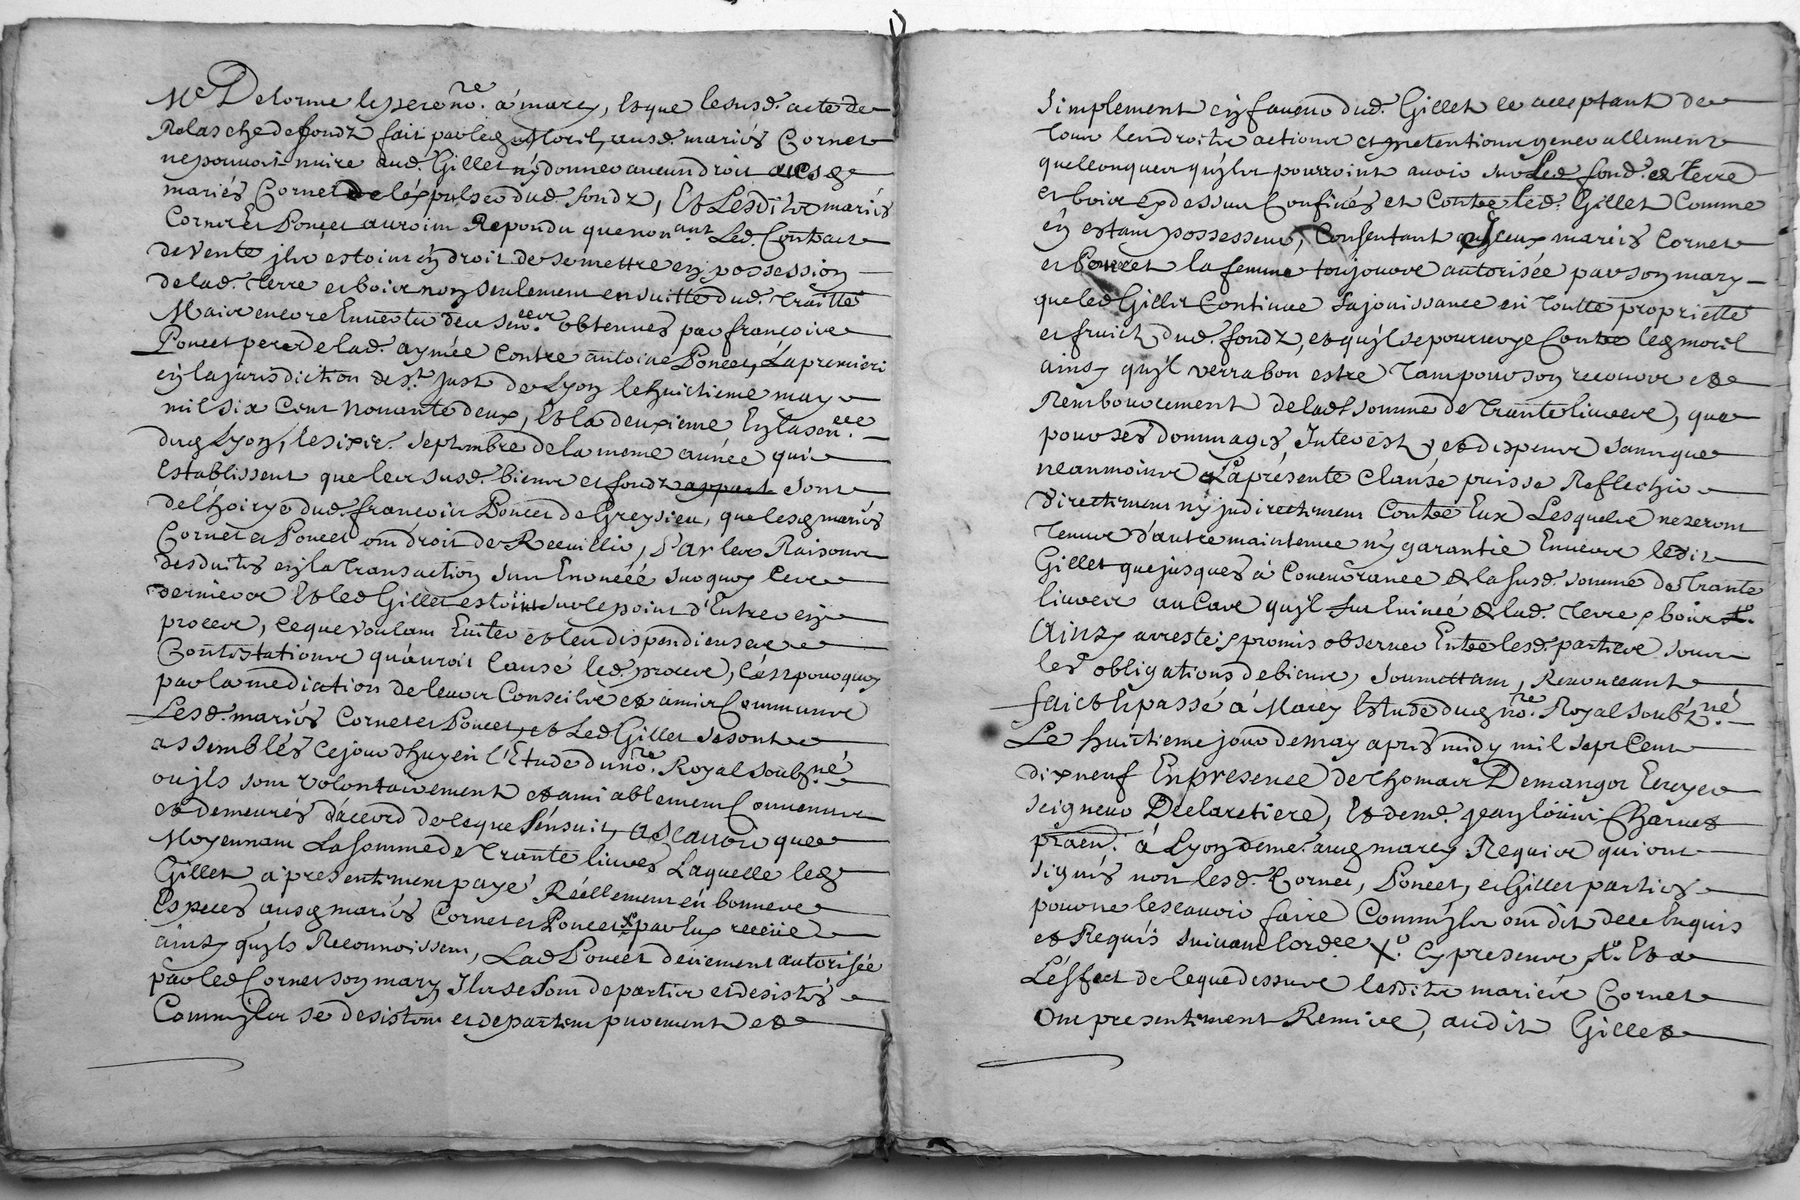 Me Delorme le pere no.re a marcy, et que le susd. acte de
Relasche de fondz fait par led Moril, ausd. mariés Cornet
ne pouvoit nuire aud. Gillet ny donner aucun droit auxd
mariés Cornet de l'éxpulser dud. fondz, Et Lesdits mariés
Cornet et Poncet auroint Repondu que nonant Led. Contract
de vente ils estoint én droit de se mettre en possession
de lad. terre et bois non seulement en suitte dud. Traitté
Mais encore En vertu des sen.ces obtenues par françois
Poncet pere de lad. aymée Contre antoine Poncet, La premiere
en la jurisdiction de st. just de Lyon le huictieme may
mil six Cent Nonante deux, Et la deuxieme En la sen.cee
dud Lyon, le six.e septembre de la meme année qui
Establissent que les susd. biens et fondz sont
de l'hoirye dud. françois Poncet de Greysieu, que lesd mariés
Cornet et Poncet ont droit de Recuillir, Par les Raisons
desduites en la Transaction sus Enoncéé surquoy les
dernieres Et led Gillet estoint sur le point d'Entrer en
proces, ce que voulant Eviter et les dispendieuses
Contestations qu'auroit causé led. proces, C'est pourquoy
par la mediation de leurs Conseils et amis Communs
Lesd. mariés Cornet et Poncet, et Led Gillet se sont
assemblés ce jourdhuy en l'Etude du no.re Royal soubz.né
ou ils sont volontairement et amiablement Convenus
et demeurés d'accord de ce que s'ensuit, a scavoir que
Moyennant La somme de Trante livres Laquelle led
Gillet a présentement payé Réellement én bonnes
Especes ausd mariés Cornet et Poncet x par lux receüe
ainsy quils Reconnoissent, Lad Poncet deüement autorisée
par led Cornet son mary Ils se sont departis et desistés
Comm'ils se desistent et departent purement et
Simplement en faveur dud. Gillet ce acceptant de
Tous les droits actions et pretentions generallement
quelconques quils pourroint avoir sur Led. fond. et terre
et bois cy dessus Confinés et Contre led. Gillet Comme
én estant possesseur, Consentant Iceux mariés Cornet
et Poncet la femme toujours autorisée par son mary
que led Gillet Continue sa jouissance en Toutte proprietté
et fruicts dud. fondz, et qu'il se pourvoye Contre led moril
ainsy qu'il verra bon estre Tant pour son recours et
Remboursement de lad somme de Trante livres, que
pour ses dommages Interests et despens sans que
neanmoins La présente clause puisse Reflechir
directement ny indirectement Contre Eux Lesquels ne seront
Tenus d'autre maintenue ny garantie Envers ledit
Gillet que jusques a Concurrance de la susd. somme de Trante
livres au Cas qu'il fut Evincé de lad. Terre et bois
Ainsy arresté et promis observer Entre lesd. parties sous
les obligations de biens, soumettant, Renonceant
faict et passé á Marcy Estude dud no.re Royal soubz.né
Le huictieme jour de may apres midy mil sept Cent
dix neuf En présence de Thomas Demangot Ecuyer
seigneur De claretiere, Et deme. jean louis Charvet
praén. á Lyon deme. aud marcy Requis qui ont
signés non lesd. Cornet, Poncet, et Gillet parties
pour ne le scavoir faire Comm'ils ont dit de ce Enquis
et Requis suivant lord.ce x.o cy presents, Et a
L'éffect de ce que dessus lesdits mariés Cornet
Ont presentement Remis, audit Gillet